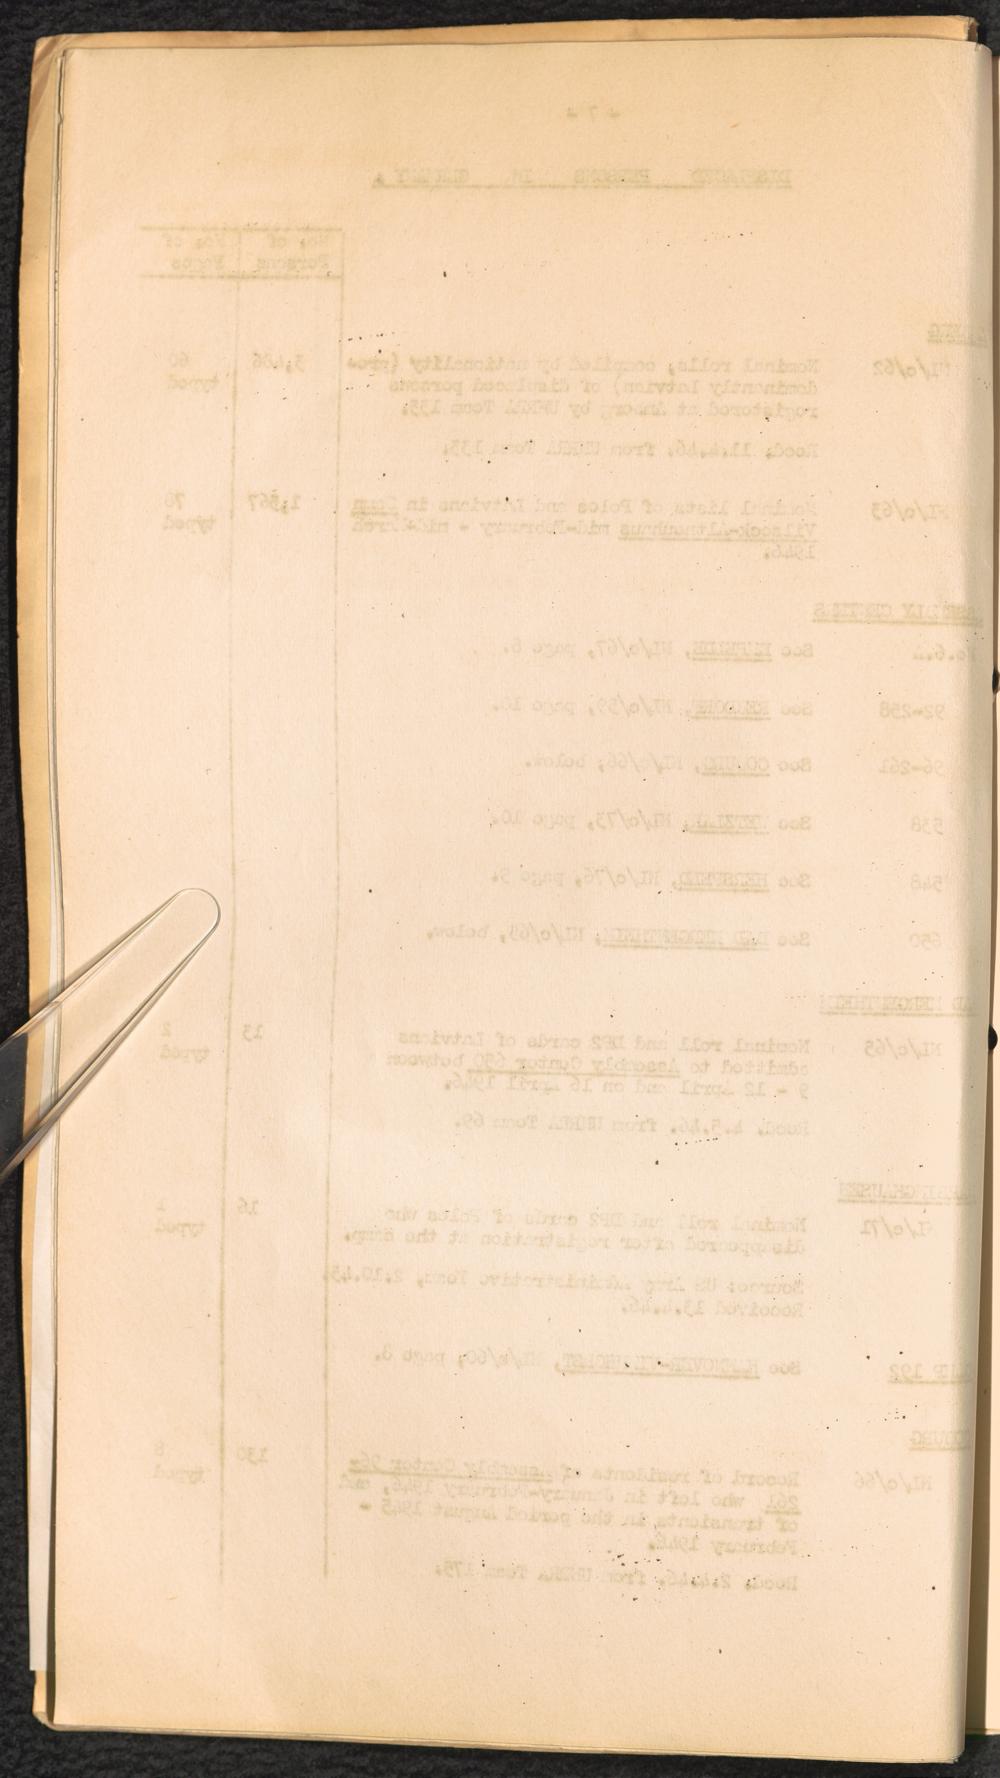 - 7 -
DISPLACED PERSONS IN GERMANY.
No. of Persons
No. of Pages
NI/c/62
Nominal rolls, compiled by nationality (pre-
dominently Latvian) of displaced persons
registered at Amberg by UNRRA Team 135.
3,486
60
typed
Recd. 11.4.46. from UNRRA Team 135.
NI/c/63
Nominal lists of Poles and Latvians in Camp
Vilseck-Altneuhaus mid-February - mid-March
1946.
1,567
78
typed
ASSEMBLY CENTERS
See NI/c/67, page 6.
92-258
See NI/c/59, page 10.
96-261
See COBURG, NI/c/66, below.
538
See WETZLAR, NI/c/73, page 10.
548
See HERSFELD, NI/c/76, page 5.
690
See BAD MERGENTHEIM, NI/c/65, below.
BAD MERGENTHEIM
NI/c/65
Nominal roll and DP2 cards of Latvians
admitted to Assembly Center 690 between
9 - 12 April and on 16 April 1946.
13
2
typed
Recd. 4.5.46. from UNRRA Team 69.
NI/c/71
Nominal roll and DP2 cards of Poles who
disappeared after registration at the Camp.
16
1
typed
Source: US Army Administrative Team, 2.10.45.
Received 13.4.46.
CAMP 192
See HANNOVER-VINNHORST, page 8.
COBURG
NI/c/66
Record of residents of Assembly Center 96-
261 who left in January-February 1946, and
of transients in the period August 1945 -
February 1946.
130
8
typed
Recd. 2.4.46. from UNRRA Team 175.